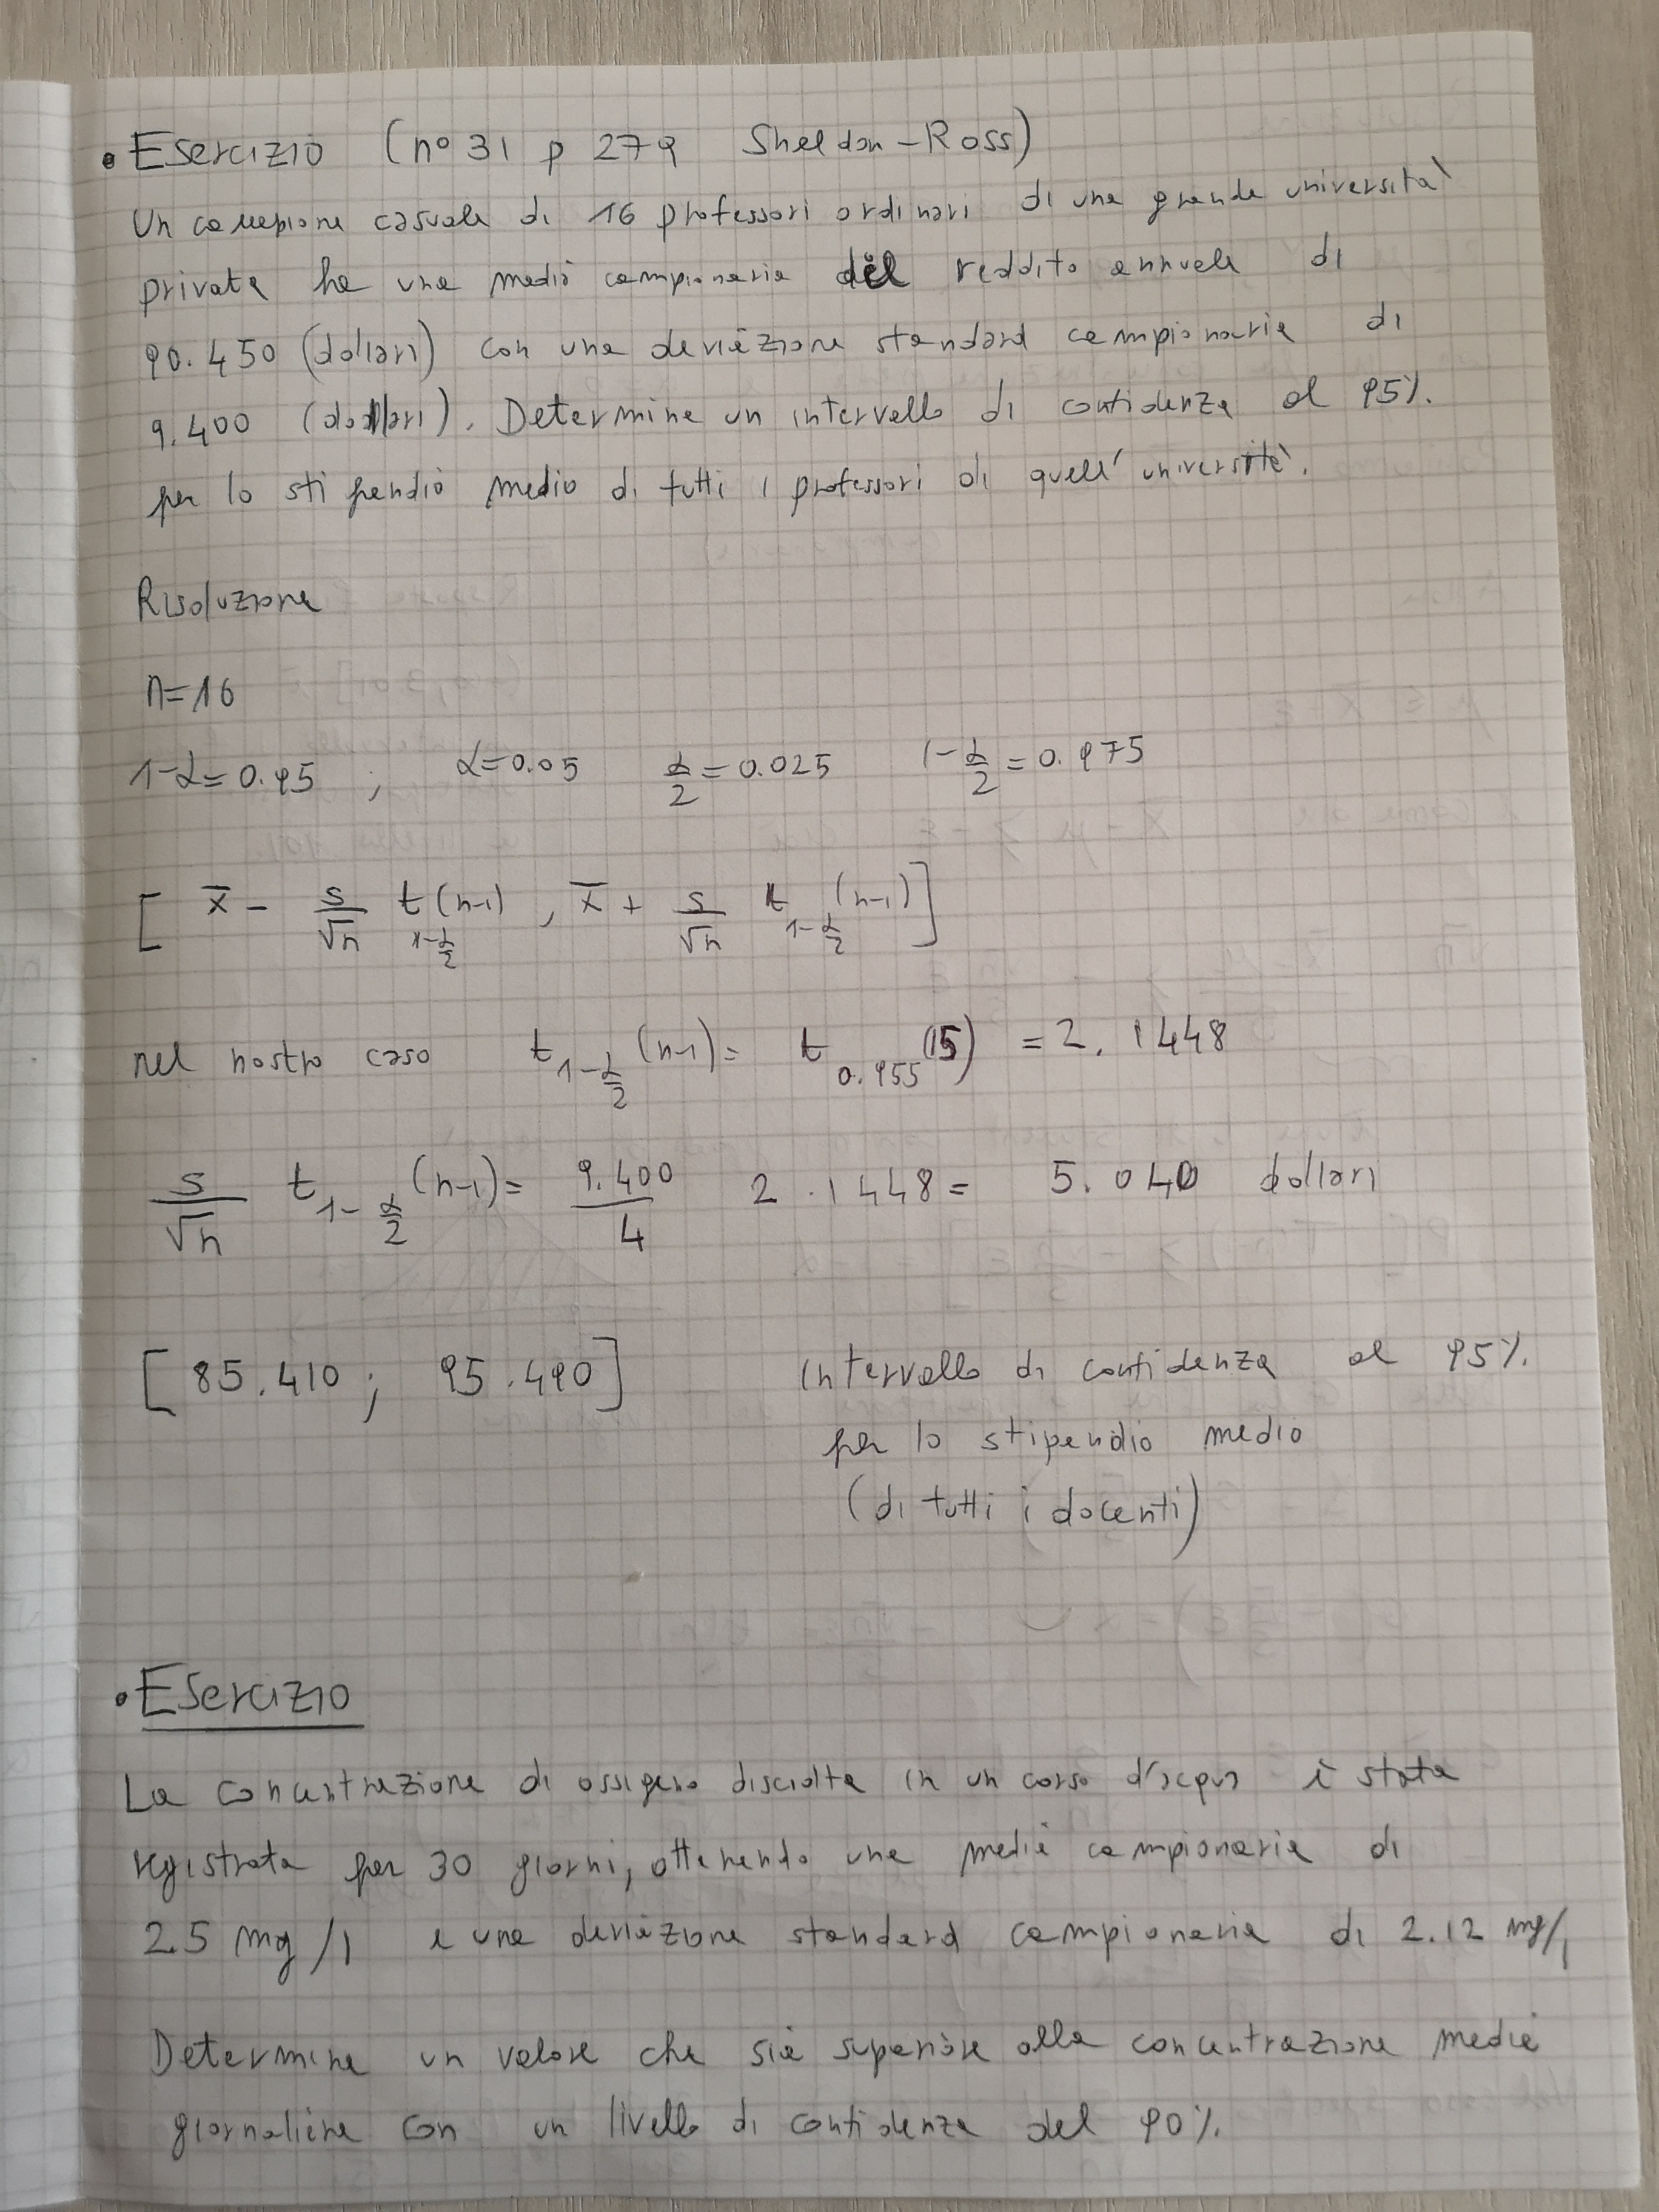 • Esercizio (n° 31 p 279 Sheldon-Ross)
Un campione casuale di 16 professori ordinari di una grande università
privata ha una media campionaria del reddito annuale di
90.450 (dollari) con una deviazione standard campionaria di
9.400 (dollari). Determina un intervallo di confidenza al 95%.
per lo stipendio medio di tutti i professori di quell'università.
Risoluzione
n=16
1-α=0.95 ; α=0.05 α/2=0.025 1-α/2=0.975
[ x̄ - s/√n t_{1-α/2}(n-1) , x̄ + s/√n t_{1-α/2}(n-1) ]
nel nostro caso t_{1-α/2}(n-1)= t_{0.955}(15) = 2.1448
s/√n t_{1-α/2}(n-1)= 9.400/4 2.1448= 5.040 dollari
[ 85.410 ; 95.490 ] intervallo di confidenza al 95%.
per lo stipendio medio
(di tutti i docenti)
• Esercizio
La concentrazione di ossigeno disciolta in un corso d'acqua è stata
registrata per 30 giorni, ottenendo una media campionaria di
2.5 mg/l e una deviazione standard campionaria di 2.12 mg/l
Determina un valore che sia superiore alla concentrazione media
giornaliera con un livello di confidenza del 90%.